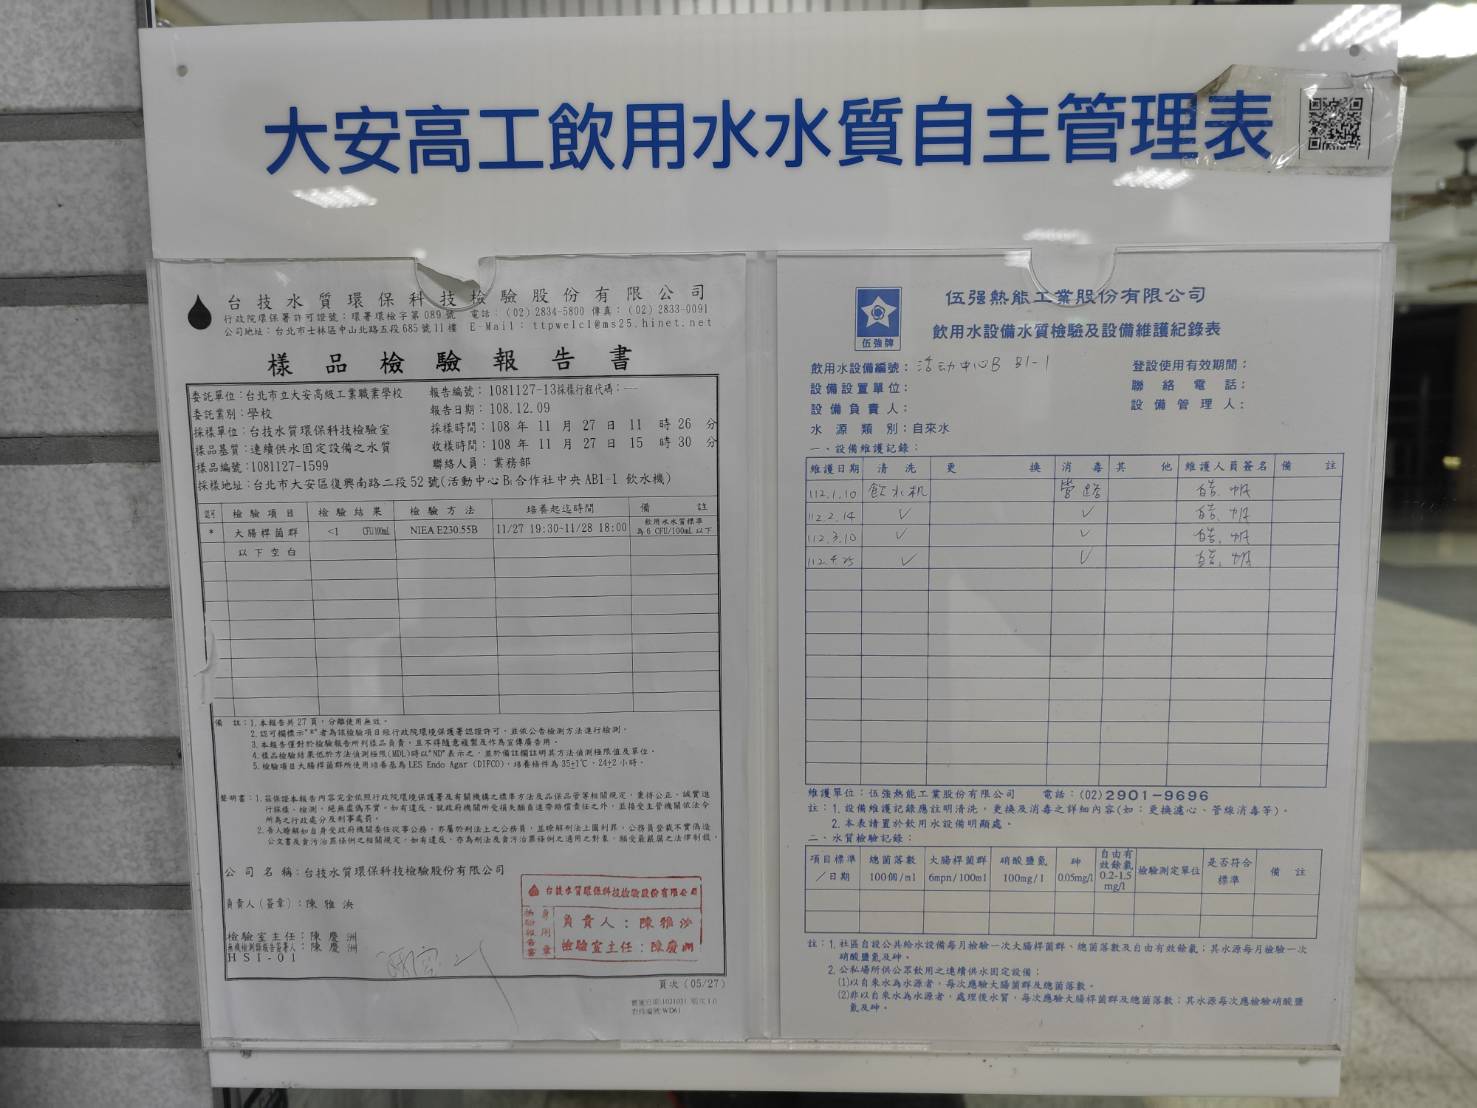 大安高工飲用水水質自主管理表
台技水質環保科技檢驗股份有限公司
行政院環保署許可證號：環署環檢字第089號 電話：(02)2834-5800 傳真：(02)2833-0091
公司地址：台北市士林區中山北路五段685號11樓 E-Mail：ttpwelcl@ms25.hinet.net
樣品檢驗報告書
委託單位：台北市立大安高級工業職業學校 報告編號：1081127-13採樣行程代碼：---
委託業別：學校 報告日期：108.12.09
採樣單位：台技水質環保科技檢驗室 採樣時間：108 年 11 月 27 日 11 時 26 分
樣品基質：連續供水固定設備之水質 收樣時間：108 年 11 月 27 日 15 時 30 分
樣品編號：1081127-1599 聯絡人員：業務部
採樣地址：台北市大安區復興南路二段52號(活動中心B1合作社中央AB1-1 飲水機)
認可 檢驗項目 檢驗結果 檢驗方法 培養起迄時間 備註
* 大腸桿菌群 <1 CFU/100mL NIEA E230.55B 11/27 19:30-11/28 18:00 飲用水水質標準為 6 CFU/100mL 以下
以下空白
備 註：1.本報告共27頁，分離使用無效。
2.認可欄標示"*"者為該檢驗項目經行政院環境保護署認證許可，並依公告檢測方法進行檢測。
3.本報告僅對於檢驗報告所列樣品負責，且不得隨意複製及作為宣傳廣告用。
4.樣品檢驗結果低於方法偵測極限(MDL)時以"ND"表示之，並於備註欄註明其方法偵測極限值及單位。
5.檢驗項目大腸桿菌群所使用培養基為LES Endo Agar (DIFCO)，培養條件為35±1℃，24±2小時。
聲明書：1.茲保證本報告內容完全依照行政院環境保護署及有關機構之標準方法及品保品管等相關規定，秉持公正、誠實進
行採樣、檢測，絕無虛偽不實。如有違反，就政府機關所受損失願負連帶賠償責任之外，並接受主管機關依法令
所為之行政處分及刑事處罰。
2.吾人瞭解如自身受政府機關委任從事公務，亦屬於刑法上之公務員，並瞭解刑法上圖利罪、公務員登載不實偽造
公文書及貪污治罪條例之相關規定，如有違反，亦為刑法及貪污治罪條例之適用之對象，願受最嚴厲之法律制裁。
公司名稱：台技水質環保科技檢驗股份有限公司
負責人(簽章)：陳雅泱
檢驗室主任：陳慶洲
無機檢測類報告簽署人：陳慶洲
HSI-01
台技水質環保科技檢驗股份有限公司
負責人：陳雅泱
檢驗室主任：陳慶洲
頁次(05/27)
伍強牌
伍强熱能工業股份有限公司
飲用水設備水質檢驗及設備維護紀錄表
飲用水設備編號：活动中心B B1-1 登設使用有效期間：
設備設置單位： 聯絡電話：
設備負責人： 設備管理人：
水源類別：自來水
一、設備維護記錄：
維護日期 清洗 更換 消毒 其他 維護人員簽名 備註
112.1.10 飲水机 管路
112.2.14 ✓ ✓
112.3.10 ✓ ✓
112.4.25 ✓ ✓
維護單位：伍强熱能工業股份有限公司 電話：(02)2901-9696
註：1.設備維護記錄應註明清洗，更換及消毒之詳細內容(如：更換濾心、管線消毒等)。
2.本表請置於飲用水設備明顯處。
二、水質檢驗記錄：
項目標準/日期 總菌落數100個/ml 大腸桿菌群6mpn/100ml 硝酸鹽氮100mg/l 砷0.05mg/l 自由有效餘氯0.2-1.5mg/l 檢驗測定單位 是否符合標準 備註
註：1.社區自設公共給水設備每月檢驗一次大腸桿菌群、總菌落數及自由有效餘氯；其水源每月檢驗一次
硝酸鹽氮及砷。
2.公私場所供公眾飲用之連續供水固定設備：
(1)以自來水為水源者，每次應驗大腸菌群及總菌落數。
(2)非以自來水為水源者，處理後水質，每次應驗大腸桿菌群及總菌落數；其水源每次應檢驗硝酸鹽
氮及砷。